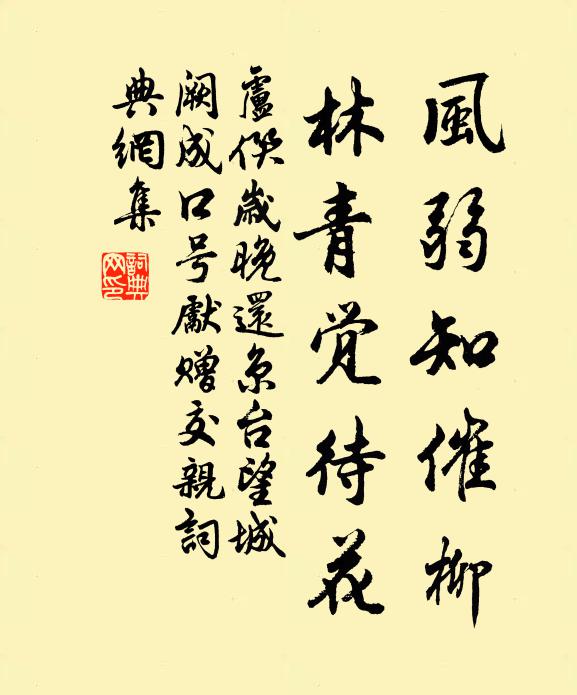 風弱知催柳
林青觉待花
盧僎歲晚還京台望城
闕成口号獻贈交親詞
典網集
詞典网印